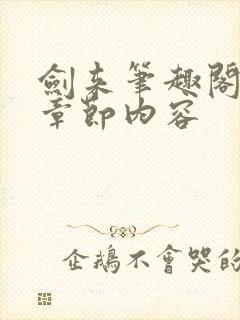 劍來筆趣閣
章節內容
企鵝不會哭的